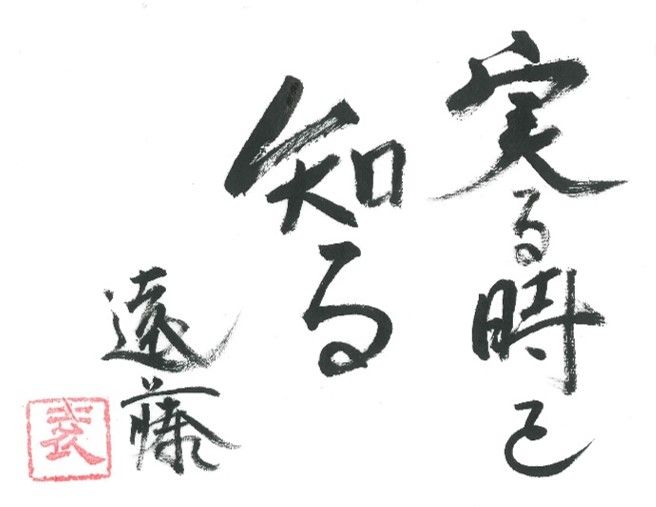 実る時己
知る
遠藤